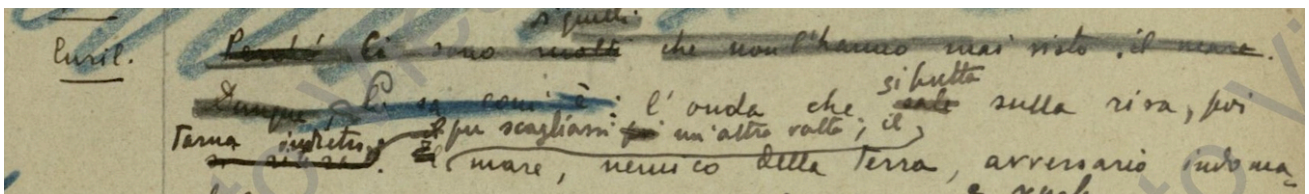 Curil. Perché Ci sono molti che non l'hanno mai visto, il mare.
Dunque, Si sa com'è: l'onda che sale si butta sulla riva, poi
torna indietro per scagliarsi poi un'altra volta; il
mare, nemico della Terra, avversario indoma-